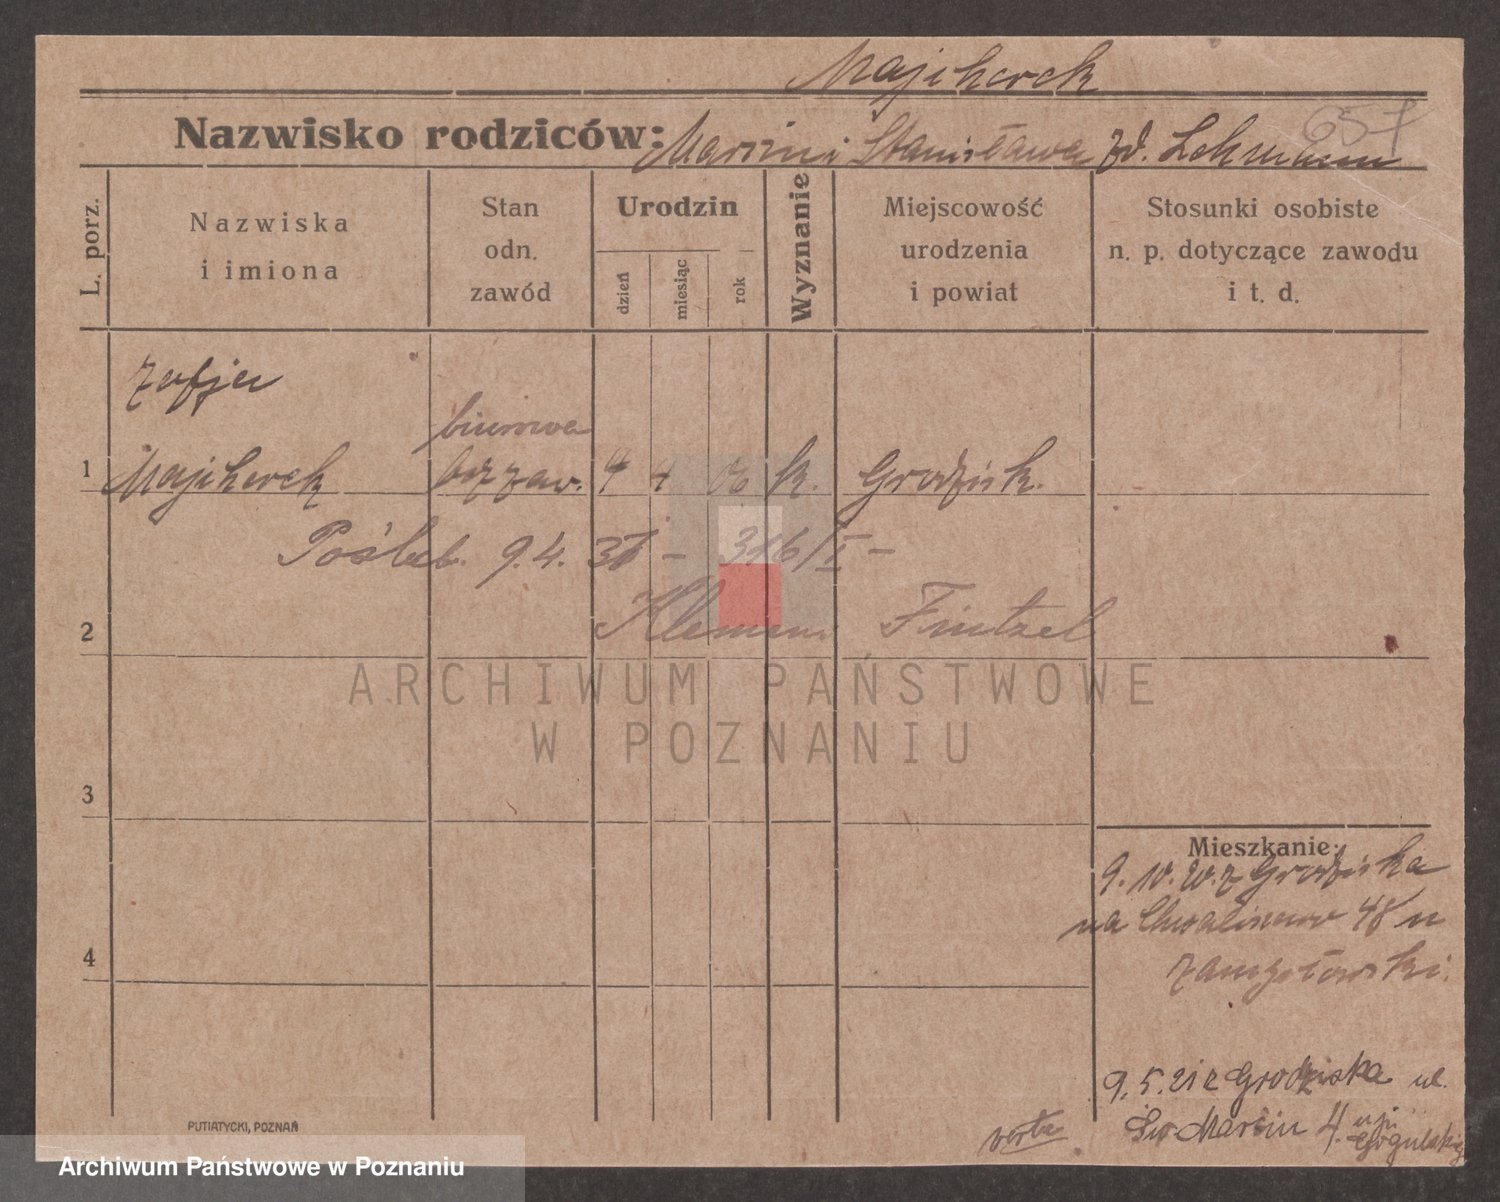 Majcherek
657
Nazwisko rodziców: Marcin i Stanisława zd. Lehmann
L. porz.
Nazwiska
i imiona
Stan
odn.
zawód
Urodzin
dzień
miesiąc
rok
Wyznanie
Miejscowość
urodzenia
i powiat
Stosunki osobiste
n. p. dotyczące zawodu
i t. d.
Zofja
biurowa
1 Majcherek bez zaw. 4 4 02 k. Grodzisk.
Poślub. 9.4. 31 – 316/I –
2 Klemens Fintzel
3
Mieszkanie:
9. 10. 20. z Grodziska
na Chwaliszewo 48 u
4
Zamysłowski.
9. 5. 21 z Grodziska ul.
Św. Marcin 4. u p.
Gogulski
verte
PUTIATYCKI, POZNAŃ
ARCHIWUM PAŃSTWOWE
W POZNANIU
Archiwum Państwowe w Poznaniu